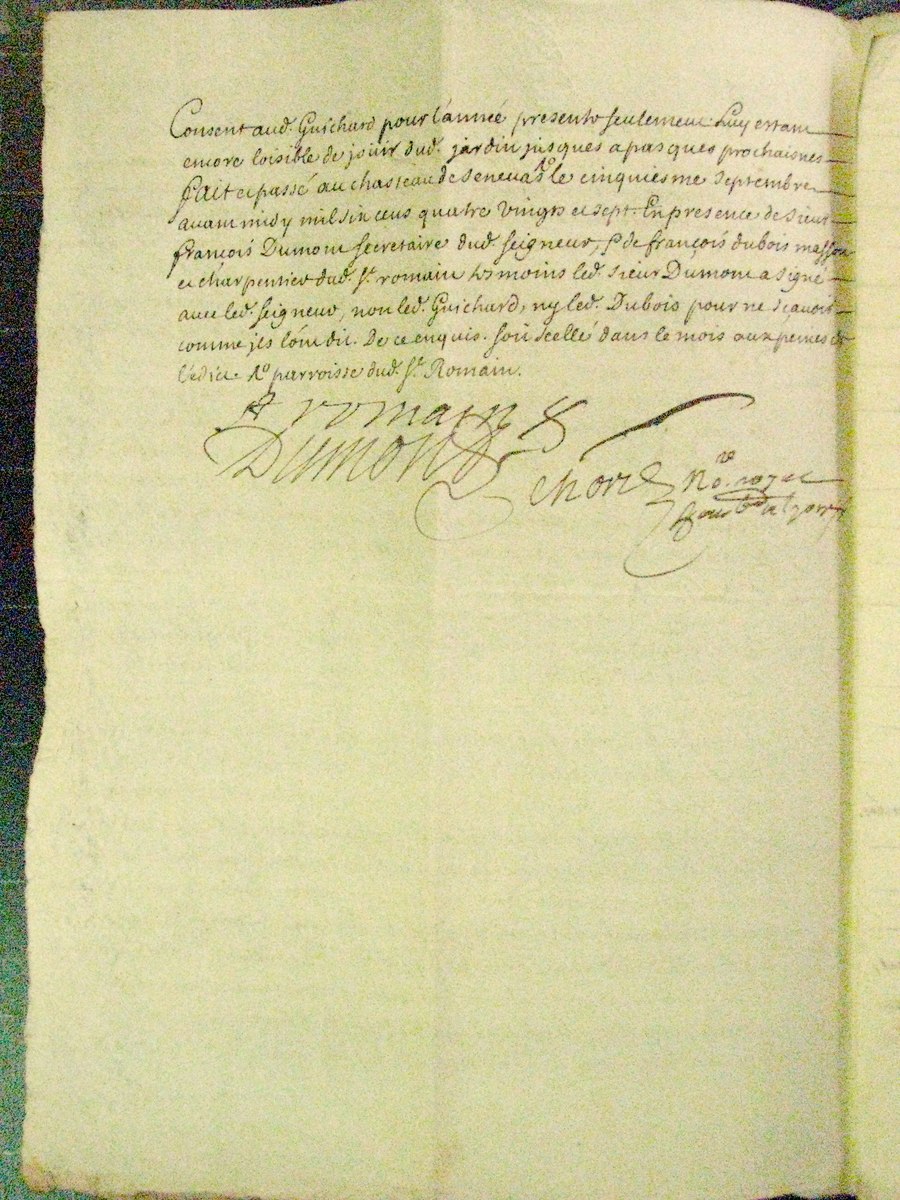 Consent aud. Guichard pour l'année presente seulement Luy estant
encore loisible de jouir dud. jardin jusques a pasques prochaines
fait et passé au chasteau de Senevas Ro le cinquiesme Septembre
avant midy mil six cens quatre vingts et sept. En presence de sieur
françois Dumont secretaire dud. seigneur, & de françois dubois masson
et charpentier dud. St. romain tesmoins led. sieur Dumont a signé
avec led. seigneur, non led. Guichard, ny led. Dubois pour ne sçavoir
comme jls l'ont dit. De ce enquis. soit scellé dans le mois aux peines de
l'edict. Ro parroisse dud. St. Romain.
St romain
Dumond
Chorel No.re royal